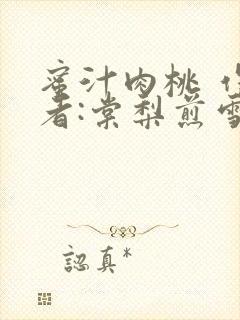 蜜汁肉桃 作
者:棠梨煎雪
認真*